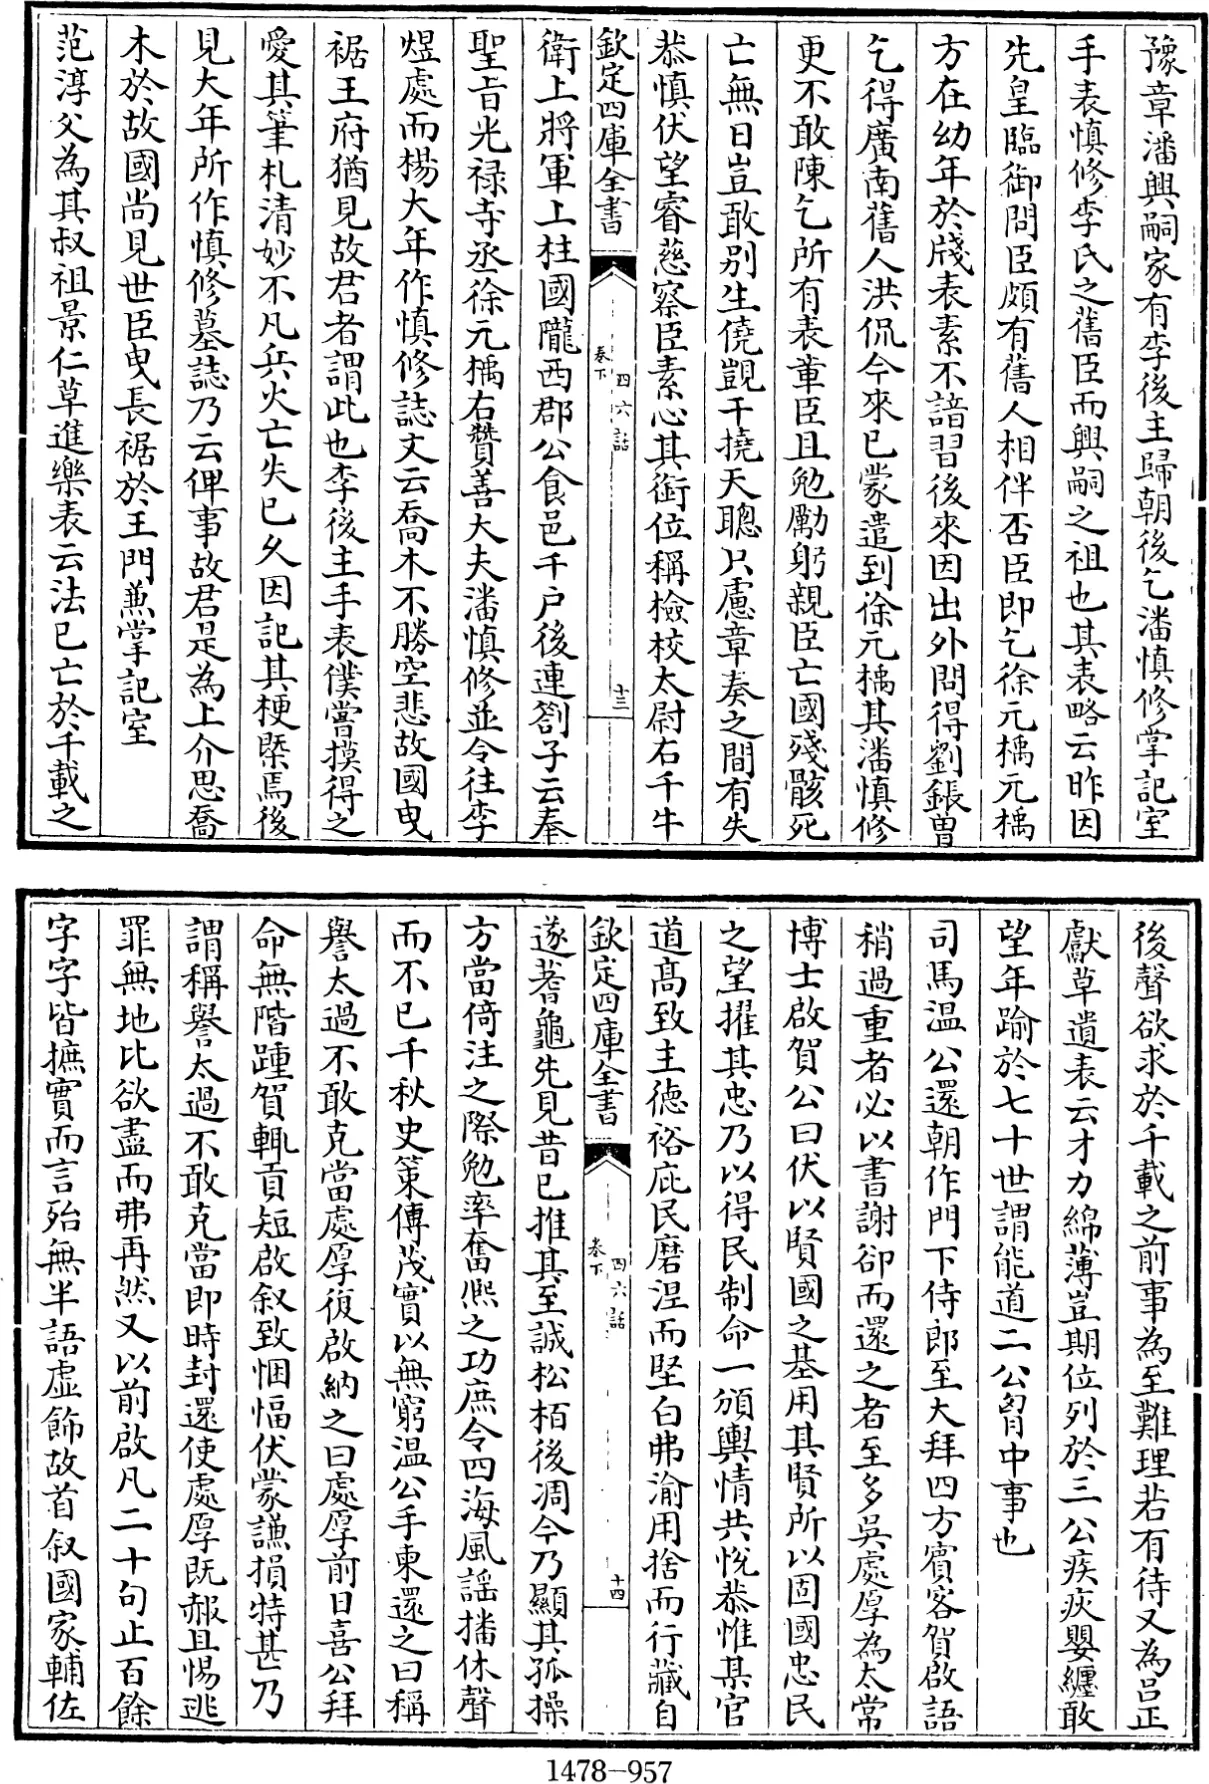 豫章潘興嗣家有李後主歸朝後乞潘慎修掌記室
手表慎修李氏之舊臣而興嗣之祖也其表略云昨因
先皇臨御問臣頗有舊人相伴否臣即乞徐元楀元楀
方在幼年於牋表素不諳習後來因出外問得劉鋹曽
乞得廣南舊人洪侃今來已蒙遣到徐元楀其潘慎修
更不敢陳乞所有表章臣且勉勵躬親臣亡國殘骸死
亡無日豈敢别生僥覬干撓天聰只慮章奏之間有失
恭慎伏望睿慈察臣素心其銜位稱檢校太尉右千牛
欽定四庫全書
四六話
卷下
十三
衛上將軍上柱國隴西郡公食邑千户後連劄子云奉
聖旨光禄寺丞徐元楀右贊善大夫潘慎修並令往李
煜處而楊大年作慎修誌文云喬木不勝空悲故國曳
裾王府猶見故君者謂此也李後主手表僕嘗摸得之
愛其筆札清妙不凡兵火亡失已乆因記其梗槩焉後
見大年所作慎修墓誌乃云俾事故君是為上介思喬
木於故國尚見世臣曳長裾於王門兼掌記室
范淳父為其叔祖景仁草進樂表云法已亡於千載之
後聲欲求於千載之前事為至難理若有待又為吕正
獻草遺表云才力綿薄豈期位列於三公疾疢嬰纏敢
望年踰於七十世謂能道二公胷中事也
司馬温公還朝作門下侍郎至大拜四方賓客賀啟語
稍過重者必以書謝卻而還之者至多吳處厚為太常
博士啟賀公曰伏以賢國之基用其賢所以固國忠民
之望擢其忠乃以得民制命一頒輿情共悦恭惟某官
道髙致主徳裕庇民磨涅而堅白弗渝用捨而行藏自
欽定四庫全書
四六話
卷下
十四
遂蓍龜先見昔已推其至誠松栢後凋今乃顯其孤操
方當倚注之際勉率奮熈之功庶令四海風謡播休聲
而不已千秋史策傳茂實以無窮温公手柬還之曰稱
譽太過不敢克當處厚復啟納之曰處厚前日喜公拜
命無階踵賀輒貢短啟叙致悃愊伏蒙謙損特甚乃
謂稱譽太過不敢克當即時封還使處厚既赧且惕逃
罪無地比欲盡而弗再然又以前啟凡二十句止百餘
字字皆摭實而言殆無半語虛飾故首叙國家輔佐
1478-957